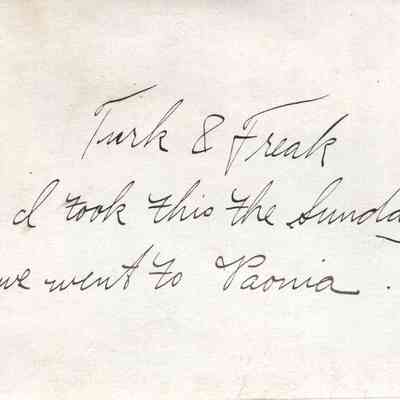 Turk & Freak
I took this the Sunda
we went to Paonia.